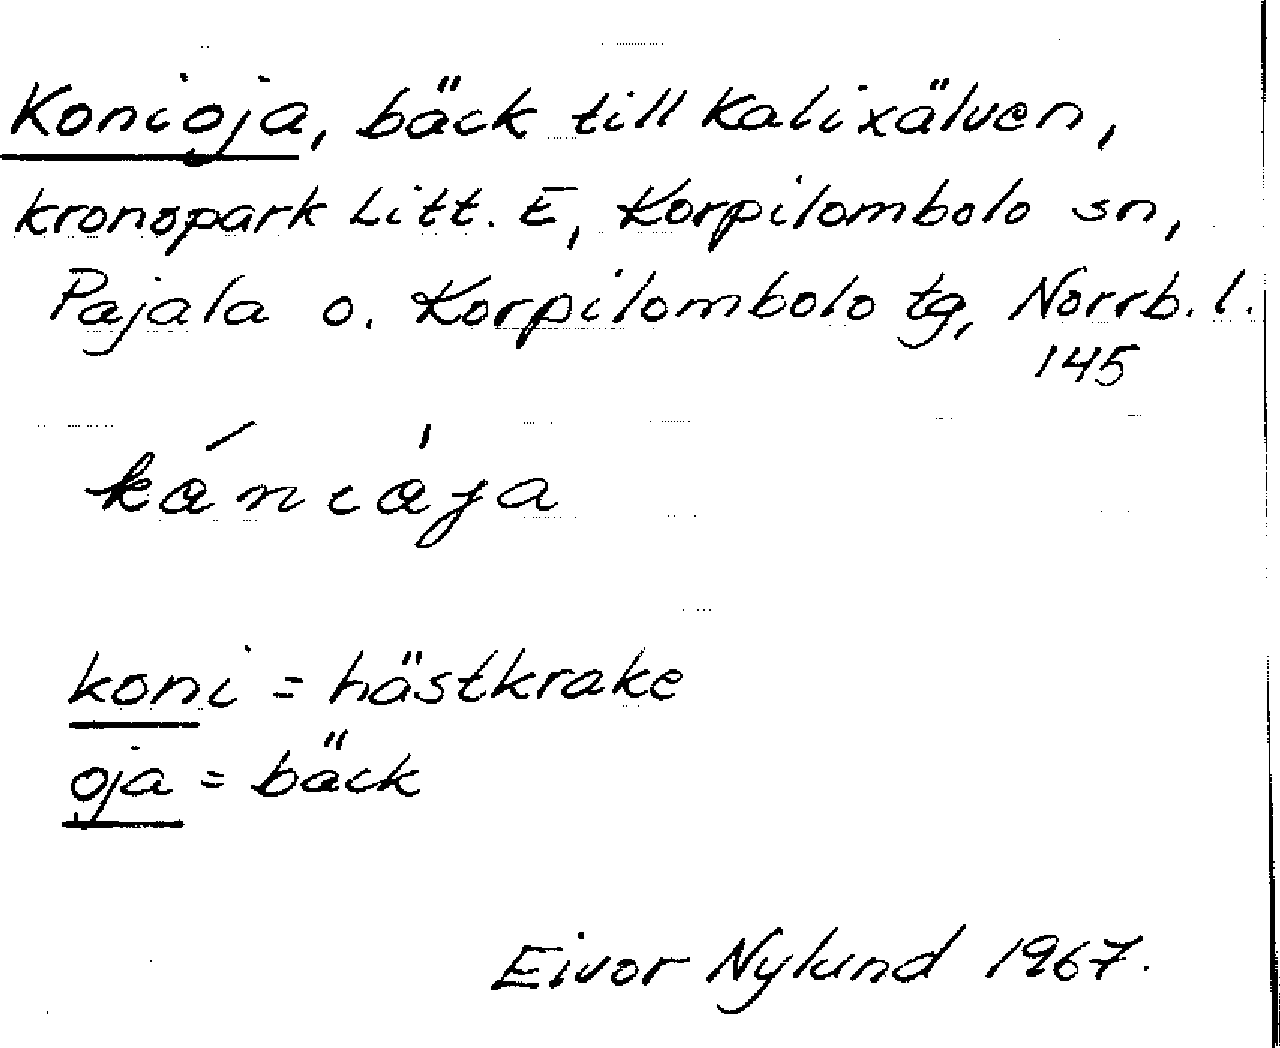 Konioja, bäck till Kalixälven,
kronopark Litt. E, Korpilombolo sn,
Pajala o. Korpilombolo tg, Norrb. l.
145
koni = hästkrake
oja = bäck
Eivor Nylund 1967.